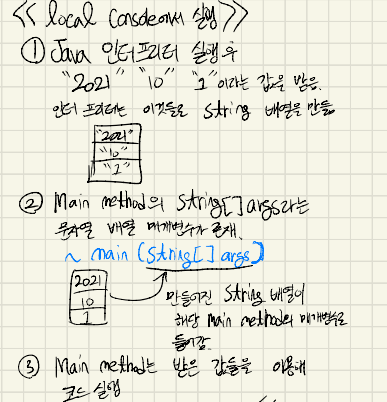 << local Console에서 실행 >>
① Java 인터프리터 실행 후
"2021" "10" "1"이라는 값을 받음.
인터프리터는 이것들로 String 배열을 만듦
"2021"
"10"
"1"
② Main method의 String[] args라는
문자열 배열 매개변수가 존재.
~ main (String[] args)
2021
10
1
만들어진 String 배열이
해당 main method의 매개변수로
들어감.
③ Main method는 받은 값들을 이용해
코드 실행